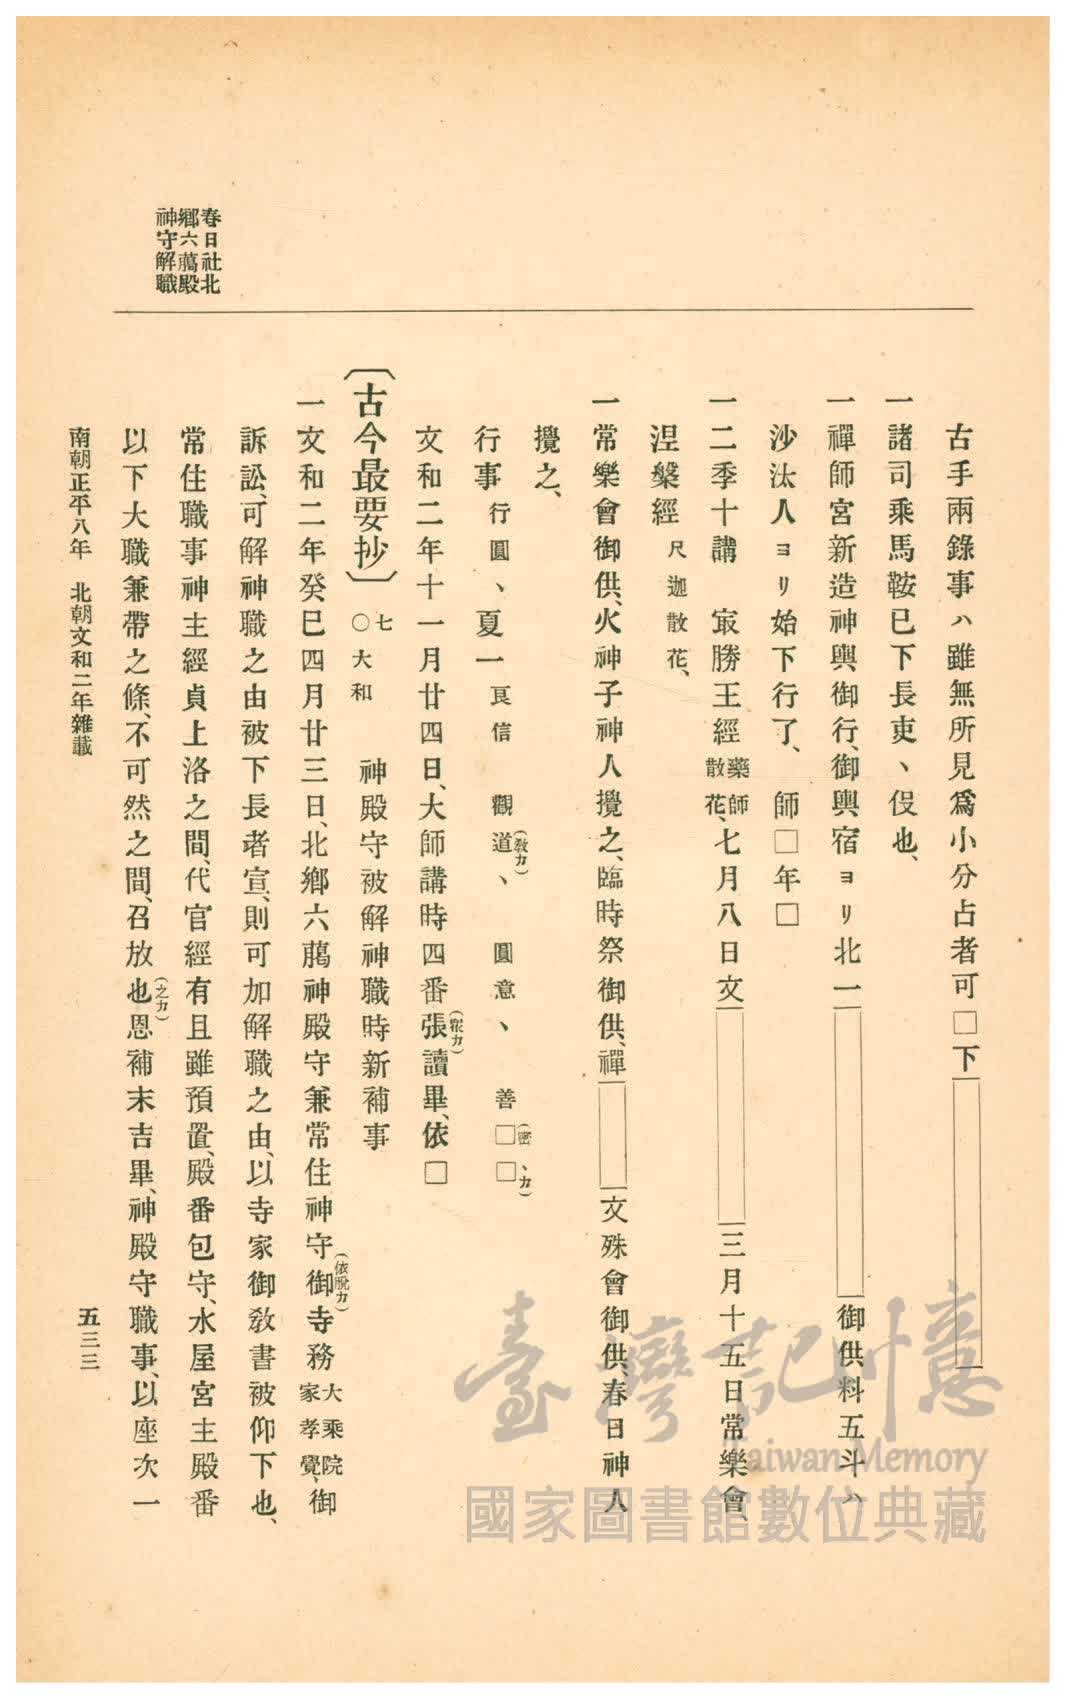 春日社北
鄕六﨟殿
神守解職
古手兩錄事ハ雖無所見爲小分占者可□下
一諸司乘馬鞍已下長吏、伇也、
一禪師宮新造神輿御行、御輿宿ヨリ北一御供料五斗ハ
沙汰人ヨリ始下行了、師□年□
一二季十講 㝡勝王經藥師散花、七月八日文三月十五日常樂會、
涅槃經尺迦散花、
一常樂會御供、火神子神人攪之、臨時祭御供、禪文殊會御供、春日神人
攪之、
行事行圓、夏一良信 觀道(敎カ)、 圓意、 善□□(密、カ)
文和二年十一月廿四日、大師講時四番張(衆カ)讀畢、依□
〔古今最要抄〕七〇大和 神殿守被解神職時新補事
一文和二年癸巳四月廿三日、北鄕六﨟神殿守兼常住神守御(依脫カ)寺務大乘院家孝覺、御
訴訟、可解神職之由被下長者宣、則可加解職之由、以寺家御敎書被仰下也、
常住職事神主經貞上洛之間、代官經有且雖預置、殿番包守、水屋宮主殿番
以下大職兼帶之條、不可然之間、召放也(之カ)恩補末吉畢、神殿守職事、以座次一
南朝正平八年 北朝文和二年雜載
五三三
臺灣記憶
Taiwan Memory
國家圖書館數位典藏